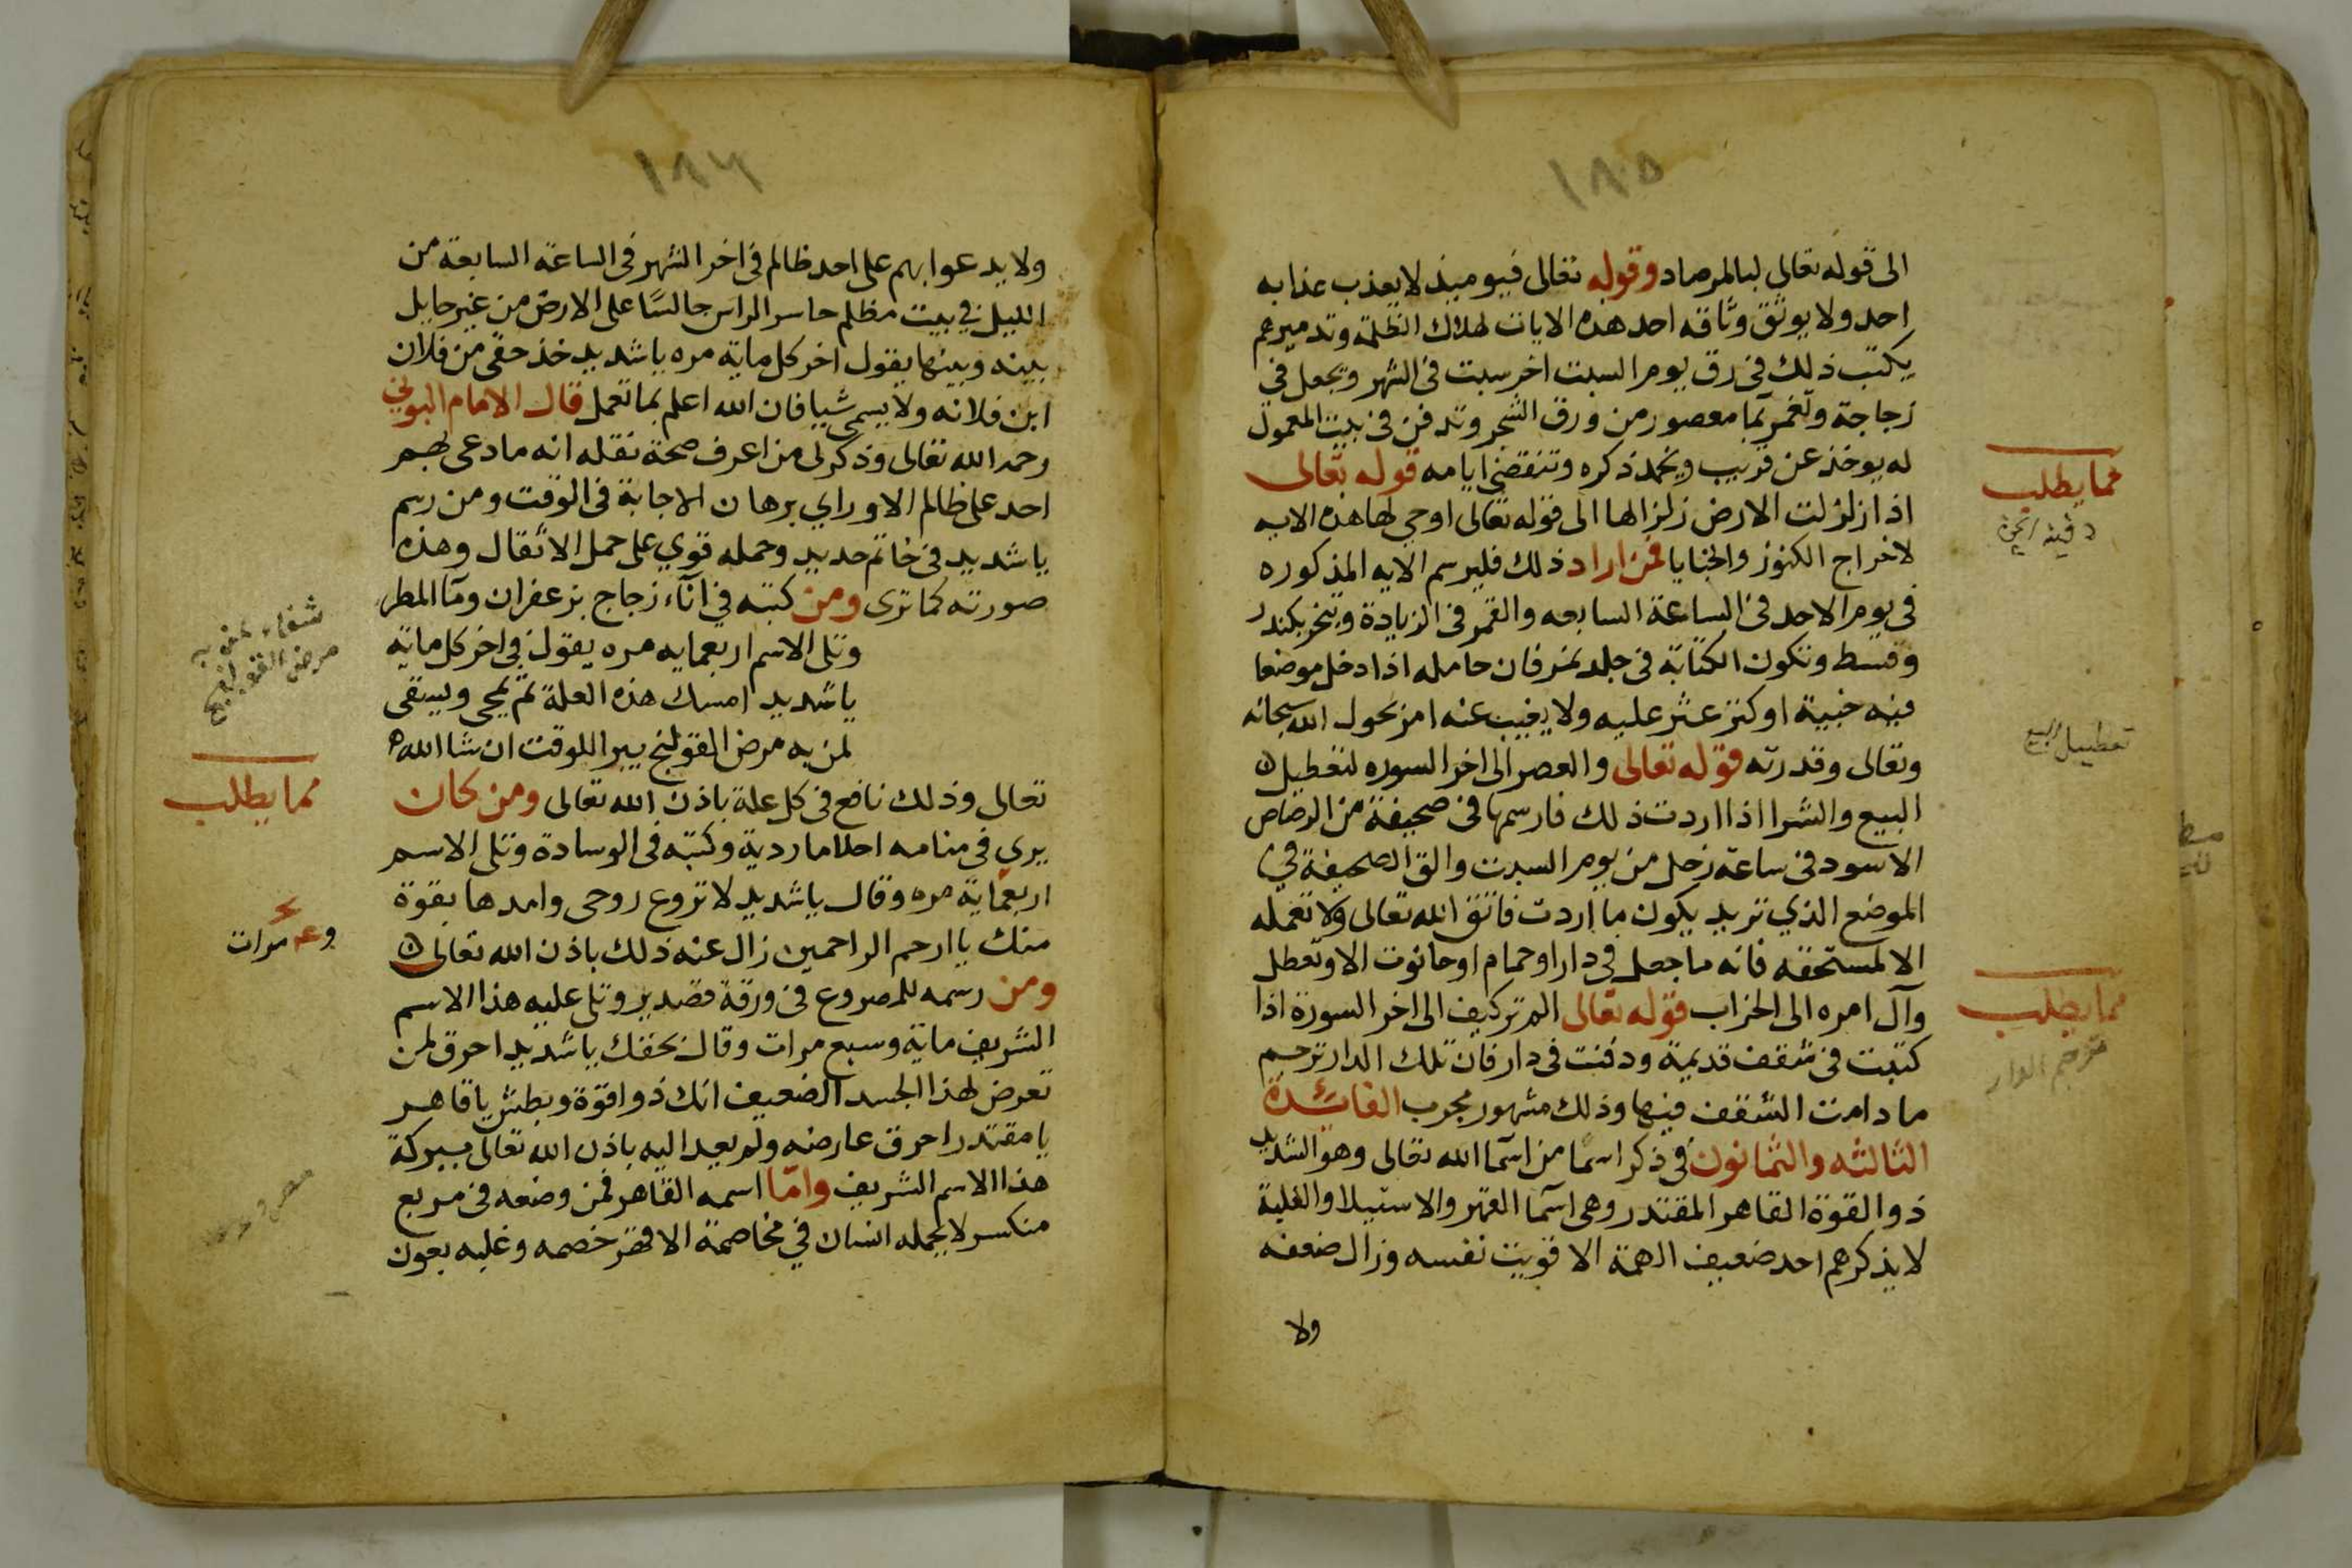 ١٨٥
الى قوله تعالى لبالمرصاد وقوله تعالى فيوميذ لا يعذب عذابه
احد ولا يوثق وثاقه احد هذه الايات لهلاك الظلمة وتدميرهم
يكتب ذلك في رق يوم السبت اخر سبت في الشهر ويجعل في
زجاجة وتغمر بما معصور من ورق الشجر وتدفن في بيت المعمول
له يوخذ عن قريب ويخمد ذكره وتنقضي ايامه قوله تعالى
اذا زلزلت الارض زلزالها الى قوله تعالى اوحي لها هذه الايه
لاخراج الكنوز والخبايا فمن اراد ذلك فليرسم الايه المذكوره
في يوم الاحد في الساعة السابعه والقمر في الزيادة ويبخر بكندر
وقسط وتكون الكتابة في جلد نمر فان حامله اذا دخل موضعا
فيه خبية او كنز عثر عليه ولا يغيب عنه امر بحول الله سبحانه
وتعالى وقدرته قوله تعالى والعصر الى اخر السوره لتعطيل
البيع والشرا اذا اردت ذلك فارسمها في صحيفة من الرصاص
الاسود في ساعة زحل من يوم السبت والق الصحيفة في
الموضع الذي تريد يكون ما اردت فاتق الله تعالى ولا تعمله
الا لمستحقه فانه ما جعل في دار او حمام او حانوت الا وتعطل
وآل امره الى الخراب قوله تعالى الم تر كيف الى اخر السورة اذا
كتبت في شقف قديمة ودفنت في دار فان تلك الدار ترجم
ما دامت الشقف فيها وذلك مشهور مجرب الفائدة
الثالثه والثمانون في ذكر اسما من اسما الله تعالى وهو الشديد
ذو القوة القاهر المقتدر وهي اسما القهر والاستيلا والغلبة
لا يذكرهم احد ضعيف الهمة الا قويت نفسه وزال ضعفه
ولا
مما يطلب
تعطييل البيع
مما يطلب
ترجم الدار
١٨٦
ولا يدعوا بهم على احد ظالم في اخر الشهر في الساعة السابعة من
الليل في بيت مظلم حاسر الراس جالسًا على الارض من غير حايل
بينه وبينها يقول اخر كل ماية مره يا شديد خذ حقي من فلان
ابن فلانه ولا يسمي شيا فان الله اعلم بما تعمل قال الامام البوني
رحمه الله تعالى وذكر لي من اعرف صحة نقله انه ما دعي بهم
احد على ظالم الا وراي برهان الاجابة في الوقت ومن رسم
يا شديد في خاتم حديد وحمله قوي على حمل الاثقال وهذه
صورته كما ترى ومن كتبه في انآء زجاج بزعفران ومآ المطر
وتلى الاسم اربعمايه مره يقول في اخر كل ماية
يا شديد امسك هذه العلة ثم يمحي ويسقى
لمن به مرض القولنج يبرا للوقت ان شا الله
تعالى وذلك نافع في كل علة باذن الله تعالى ومن كان
يري في منامه احلاما ردية وكتبه في الوسادة وتلى الاسم
اربعماية مره وقال يا شديد لا تروع روحي وامدها بقوة
منك يا ارحم الراحمين زال عنه ذلك باذن الله تعالى
ومن رسمه للمصروع في ورقة قصدير وتلى عليه هذا الاسم
الشريف ماية وسبع مرات وقال بحقك يا شديد احرق لمن
تعرض لهذا الجسد الضعيف انك ذوا قوة وبطش يا قاهر
يا مقتدر احرق عارضه ولم يعد اليه باذن الله تعالى ببركة
هذا الاسم الشريف وامّا اسمه القاهر فمن وضعه في مربع
منكسر لا يحمله انسان في مخاصمة الا قهر خصمه وغلبه بعون
شفاء لمن به
مرض القولنج
مما يطلب
مرات